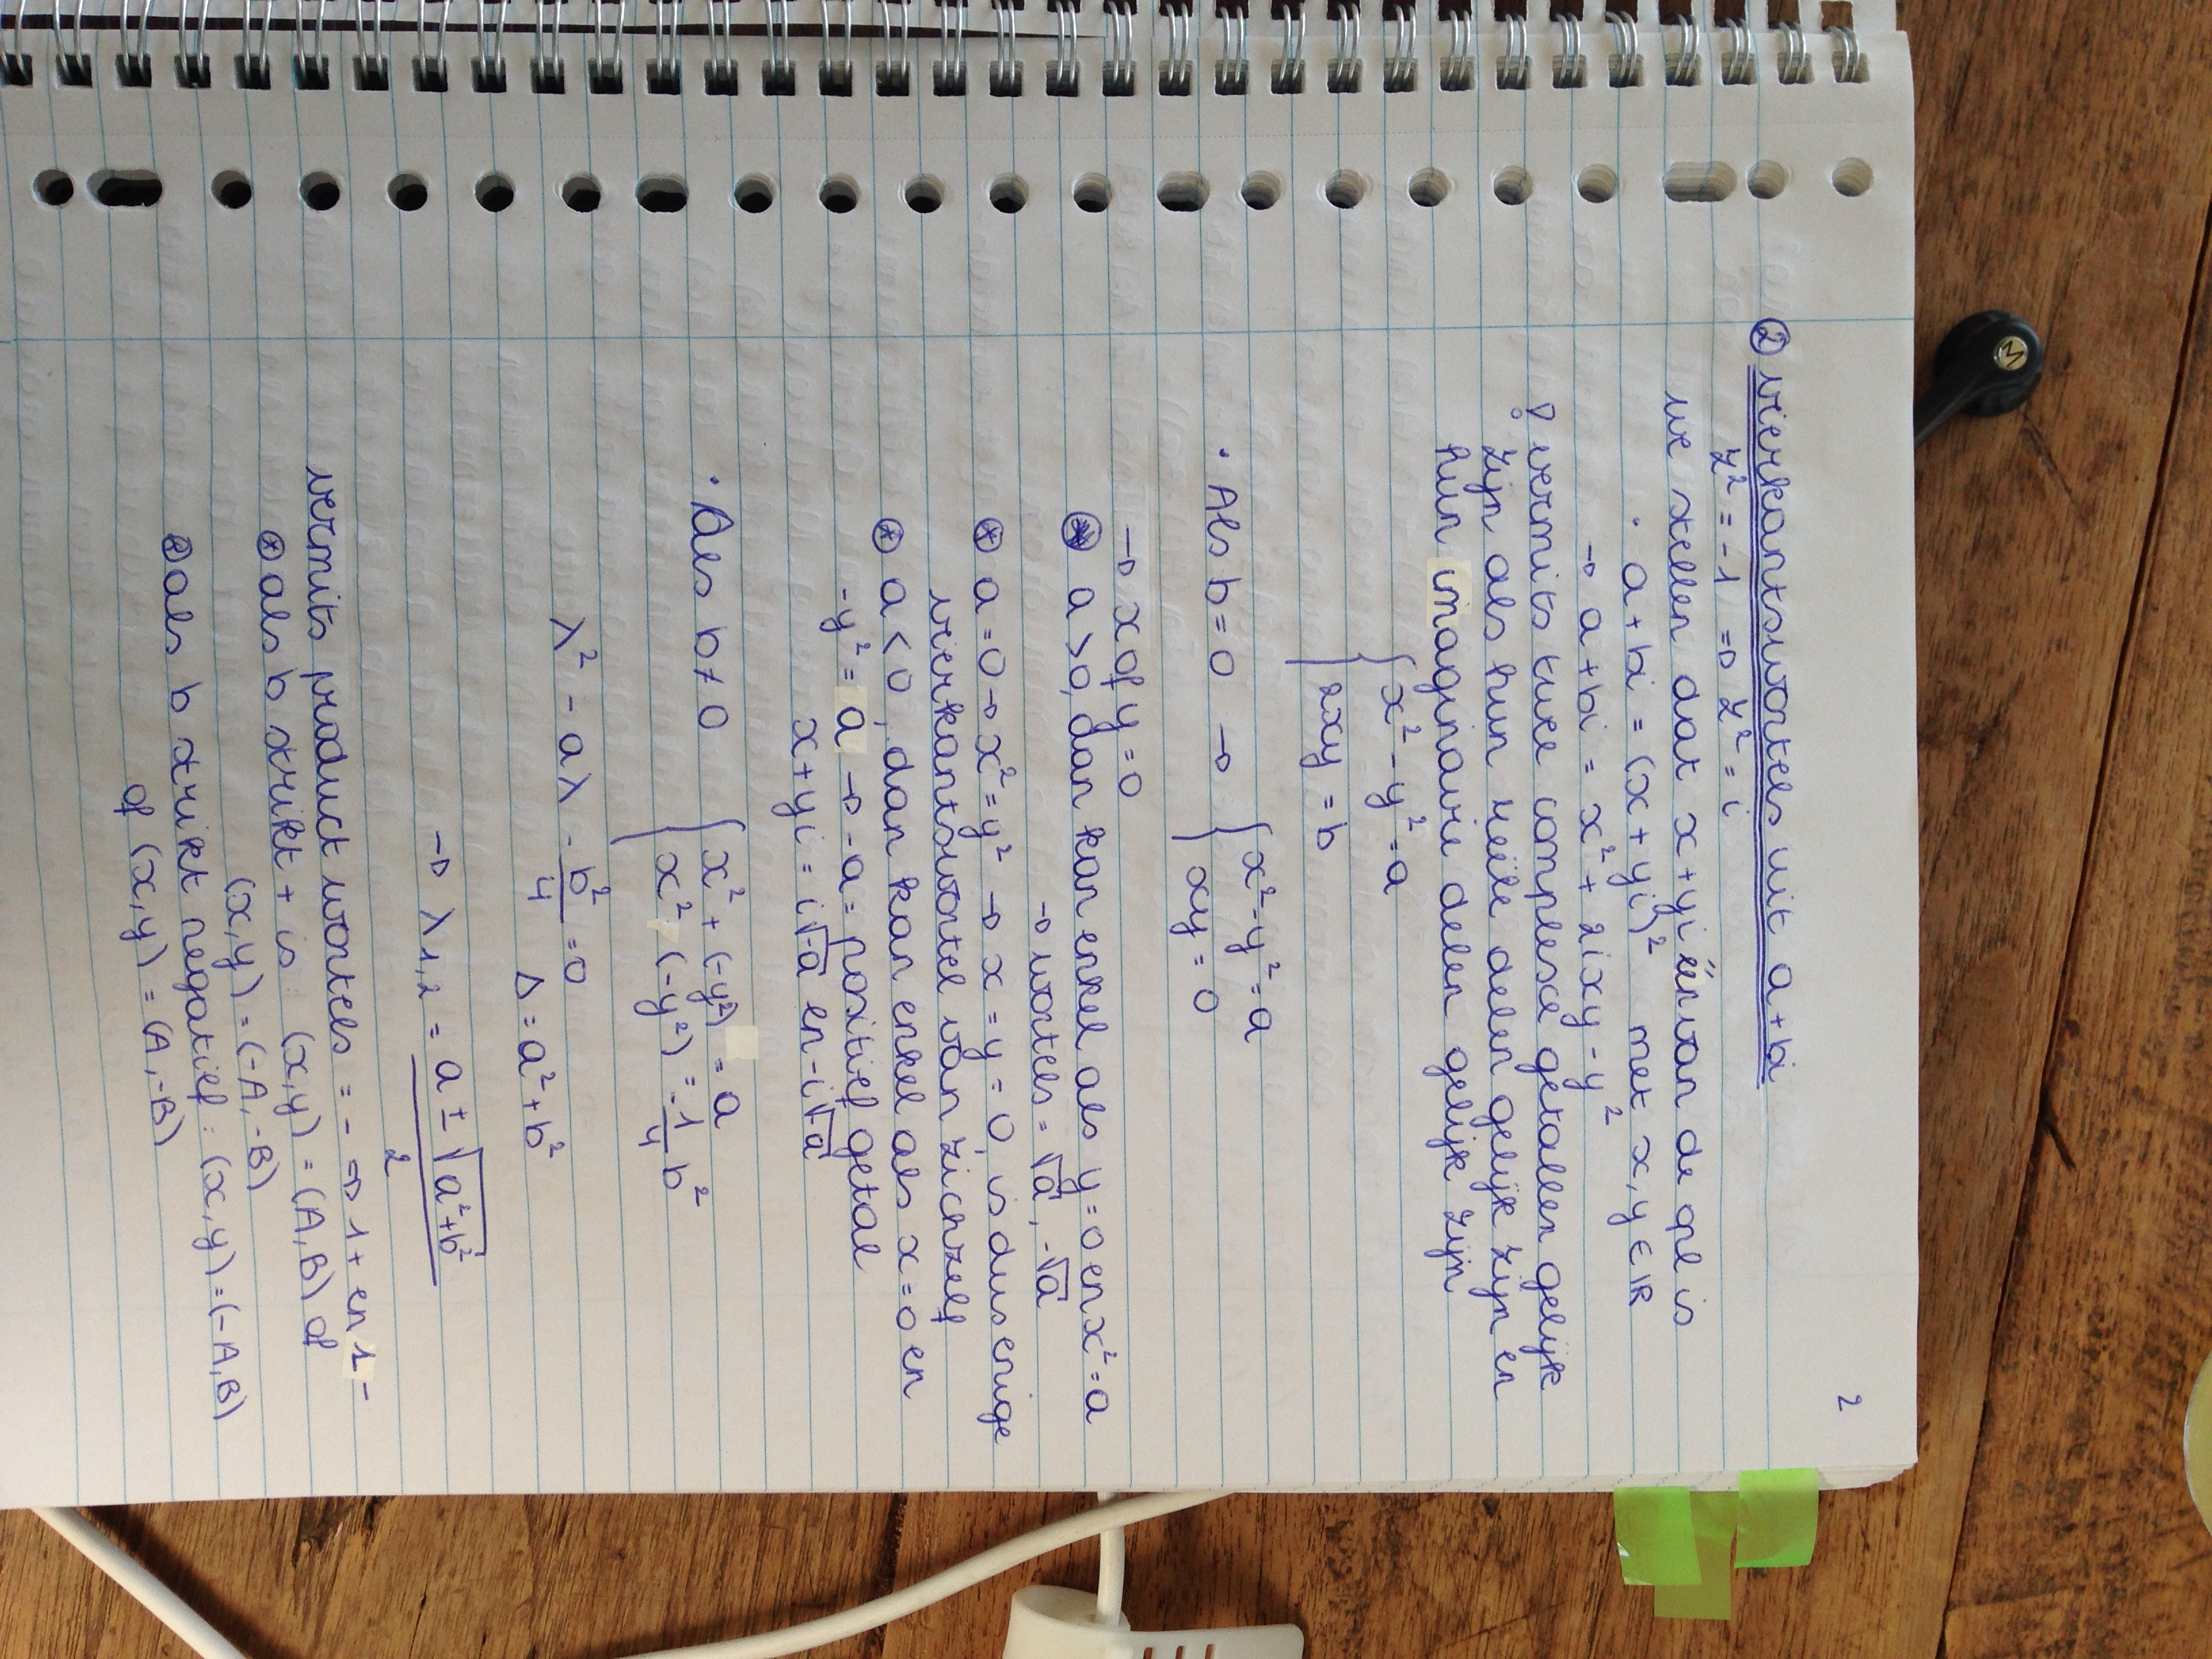 M
2
② vierkantswortels uit a+bi
z² = -1 => z² = i
we stellen dat x+yi één van de opl is
· a+bi = (x+yi)² met x, y ∈ ℝ
→ a+bi = x² + 2ixy - y²
! vermits twee complexe getallen gelijk
zijn als hun reële delen gelijk zijn en
hun imaginaire delen gelijk zijn
{ x² - y² = a
2xy = b
· Als b = 0 → { x² - y² = a
xy = 0
→ x of y = 0
⊛ a > 0, dan kan enkel als y = 0 en x² = a
→ wortels = √a, -√a
⊛ a = 0 → x² = y² → x = y = 0, is dus enige
vierkantswortel van zichzelf
⊛ a < 0, dan kan enkel als x = 0 en
-y² = a → -a = positief getal
x+yi = i√-a en -i√-a
· Als b ≠ 0 { x² + (-y²) = a
x² · (-y²) = -1/4 b²
λ² - aλ - b²/4 = 0
Δ = a² + b²
→ λ1,2 = (a ± √(a²+b²))/2
vermits product wortels = - => 1+ en 1-
⊛ als b strikt + is : (x,y) = (A,B) of
(x,y) = (-A,-B)
⊛ als b strikt negatief : (x,y) = (-A,B)
of (x,y) = (A,-B)